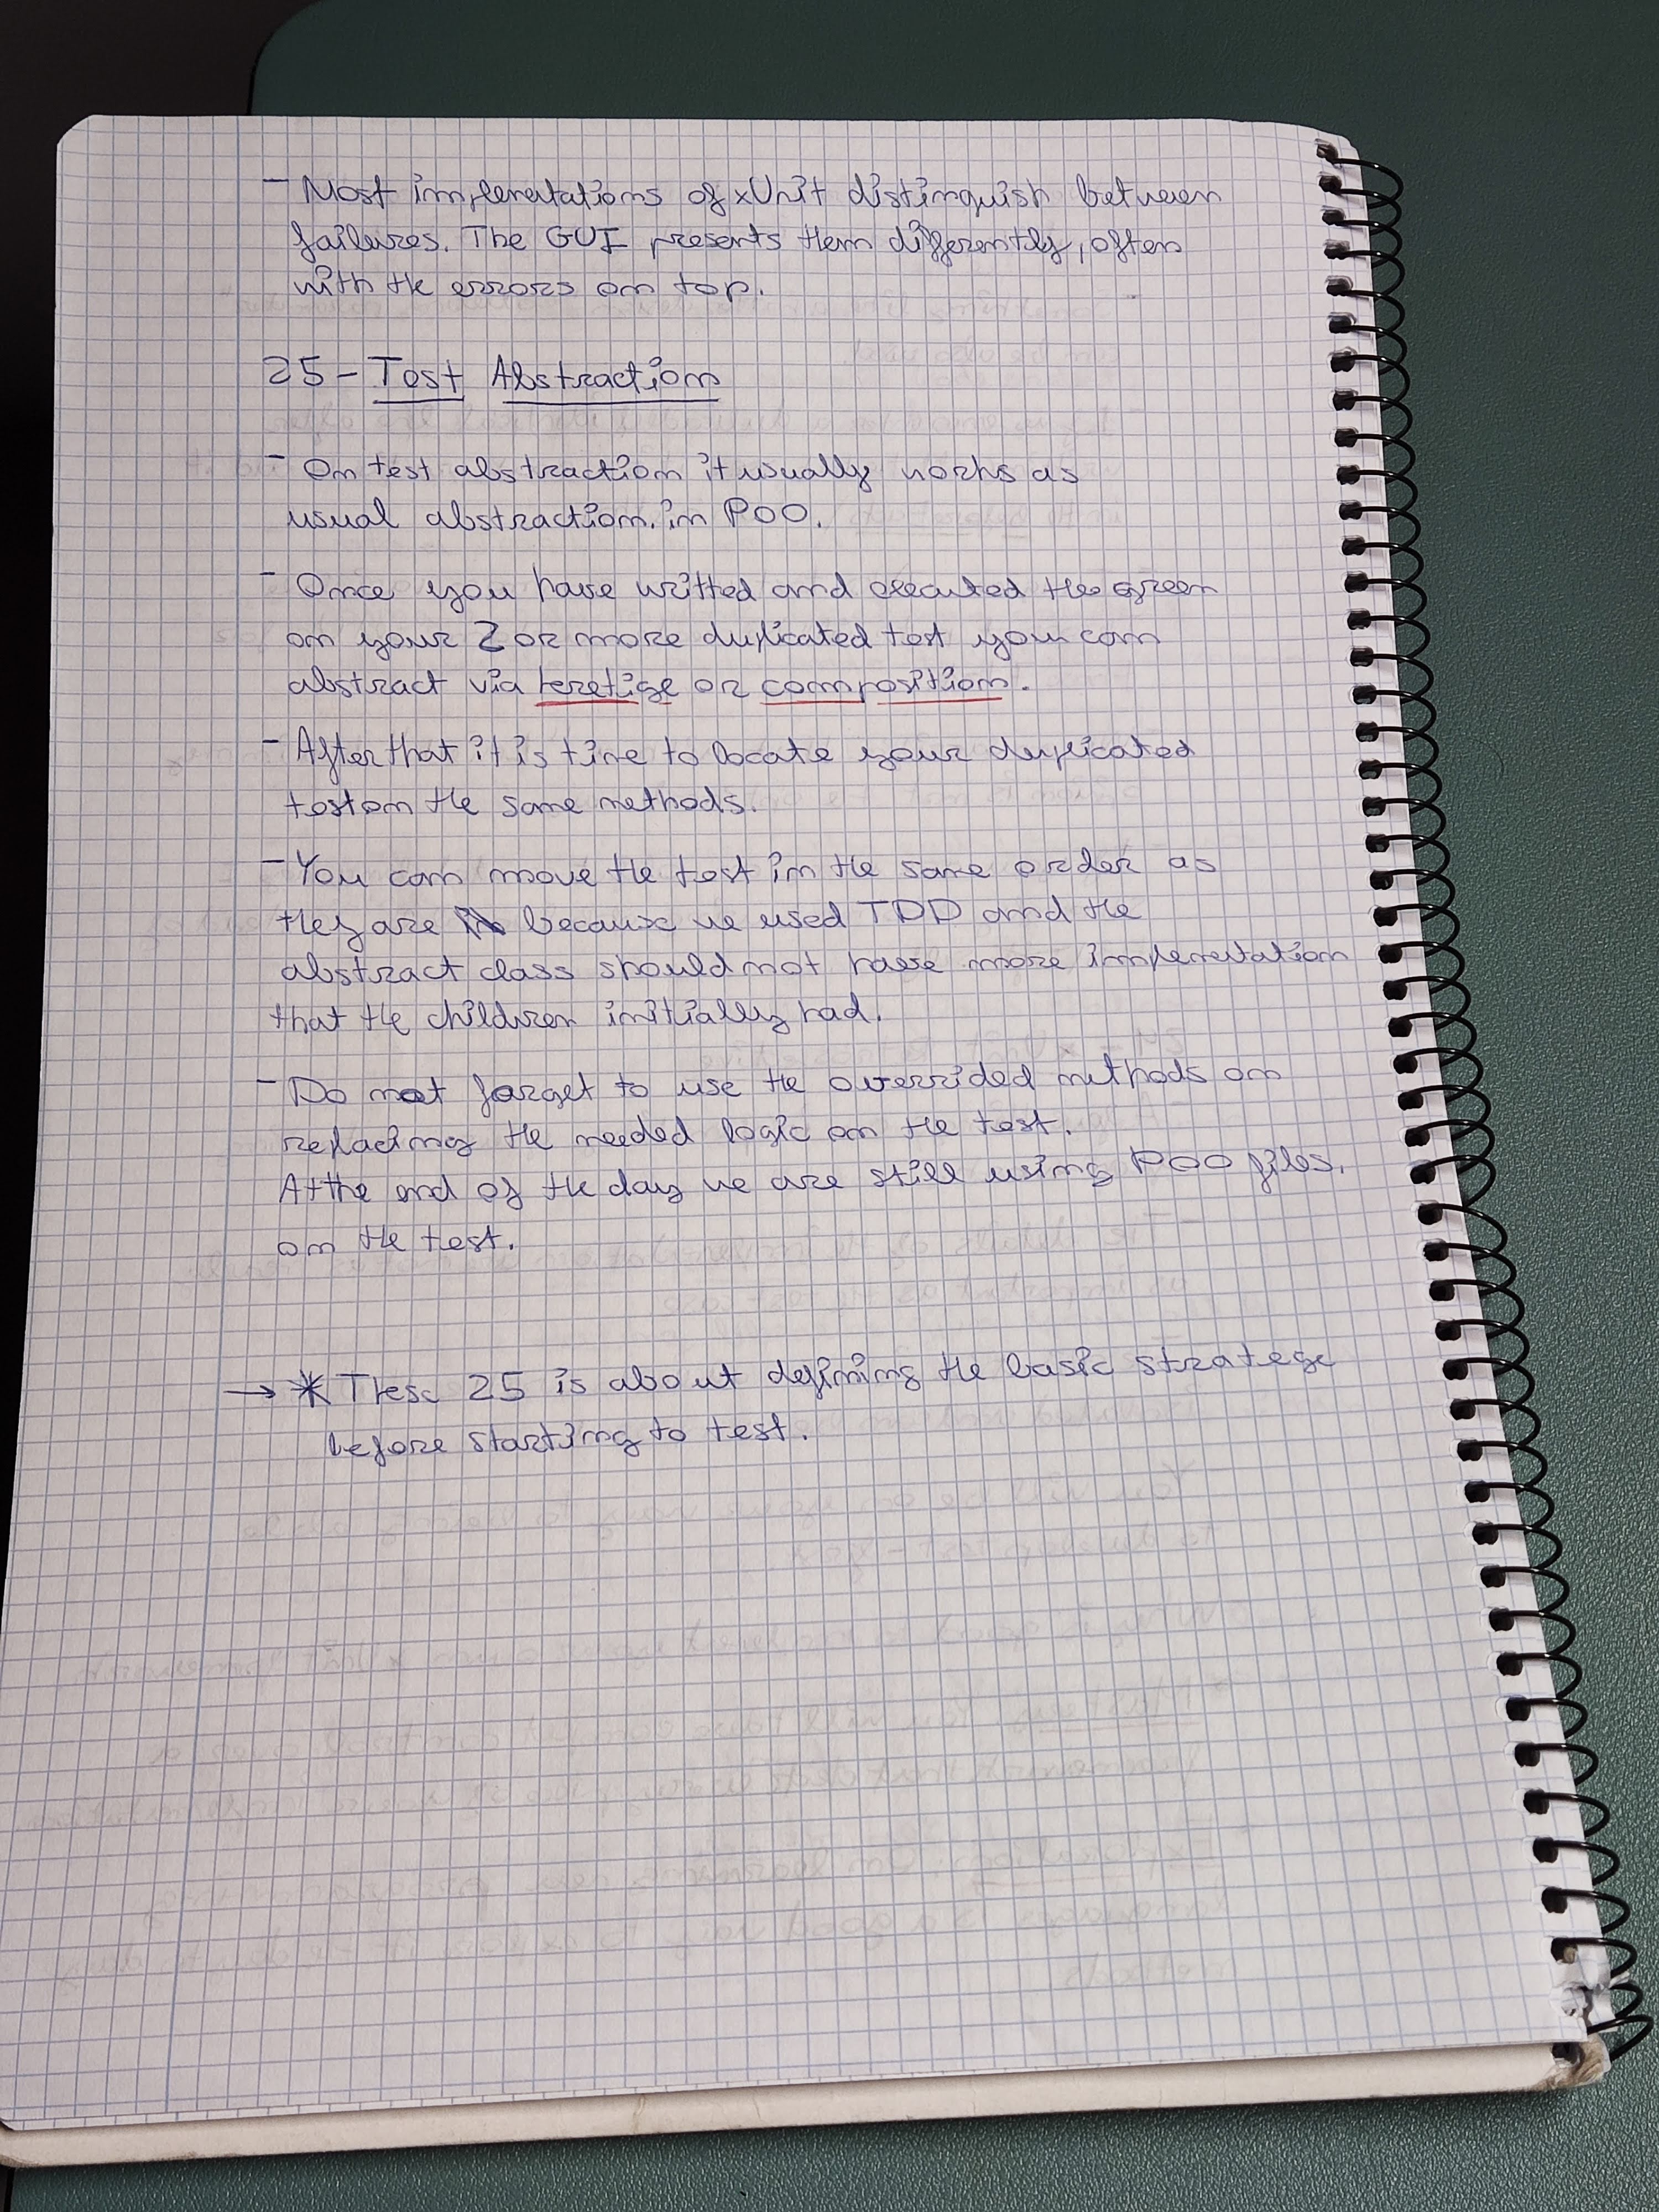 - Most implementations of xUnit distinguish between
failures. The GUI presents them differently, often
with the errors on top.
25- Test Abstraction
- On test abstraction it usually works as
usual abstraction. in POO.
- Once you have writted and executed the green
on your 2 or more duplicated test you can
abstract via or composition.
- After that it is time to locate your duplicated
test on the same methods.
- You can move the test in the same order as
they are because we used TDD and the
abstract class should not have more implementation
that the children initially had.
- Do not forget to use the overrided methods on
replacing the needed logic on the test.
At the end of the day we are still using POO files.
on the test.
→ * These 25 is about defining the basic stratege
before starting to test.